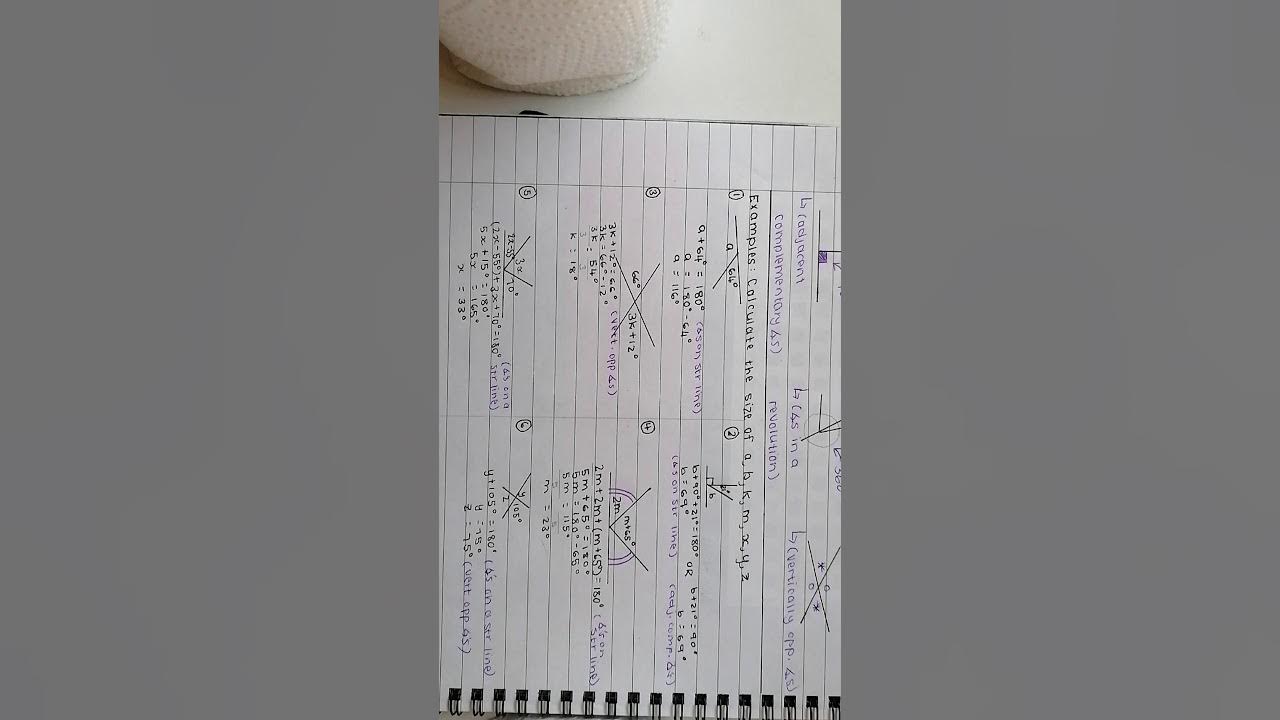 360
↳ (adjacent
complementary ∠s)
↳ (∠s in a
revolution)
* o
o *
↳ (vertically opp. ∠s)
Examples: Calculate the size of a, b, k, m, x, y, z
①
a 64°
a + 64° = 180° (∠s on str line)
a = 180° - 64°
a = 116°
②
21°
b
b + 90° + 21° = 180° OR b + 21° = 90°
b = 69° b = 69°
(∠s on str line) (adj. comp. ∠s)
③
66° 3k + 12°
3k + 12° = 66° (vert. opp ∠s)
3k = 66° - 12°
3k = 54°
3 3
k = 18°
④
2m m + 65°
2m + 2m + (m + 65°) = 180° (∠s on
str line)
5m + 65° = 180°
5m = 180° - 65°
5m = 115°
5 5
m = 23°
⑤
2x - 55° 3x 70°
(∠s on a
(2x - 55°) + 3x + 70° = 180° str line)
5x + 15° = 180°
5x = 165°
x = 33°
⑥
y 105°
z
y + 105° = 180° (∠'s on a str line)
y = 75°
z = 75° (vert opp ∠'s)